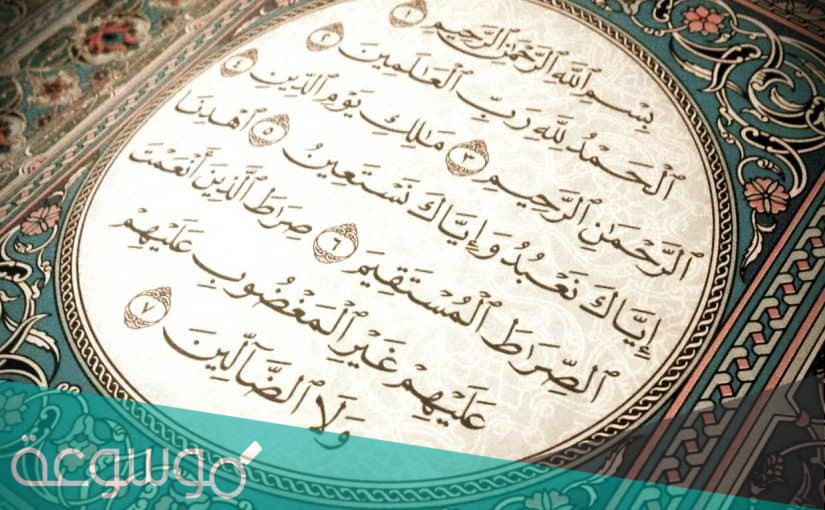 بِسْمِ ٱللَّهِ ٱلرَّحْمَٰنِ ٱلرَّحِيمِ ١
ٱلْحَمْدُ لِلَّهِ رَبِّ ٱلْعَٰلَمِينَ ٢
ٱلرَّحْمَٰنِ ٱلرَّحِيمِ ٣ مَٰلِكِ يَوْمِ ٱلدِّينِ ٤
إِيَّاكَ نَعْبُدُ وَإِيَّاكَ نَسْتَعِينُ ٥ ٱهْدِنَا
ٱلصِّرَٰطَ ٱلْمُسْتَقِيمَ ٦ صِرَٰطَ ٱلَّذِينَ أَنْعَمْتَ
عَلَيْهِمْ غَيْرِ ٱلْمَغْضُوبِ عَلَيْهِمْ
وَلَا ٱلضَّآلِّينَ ٧
موسوعة